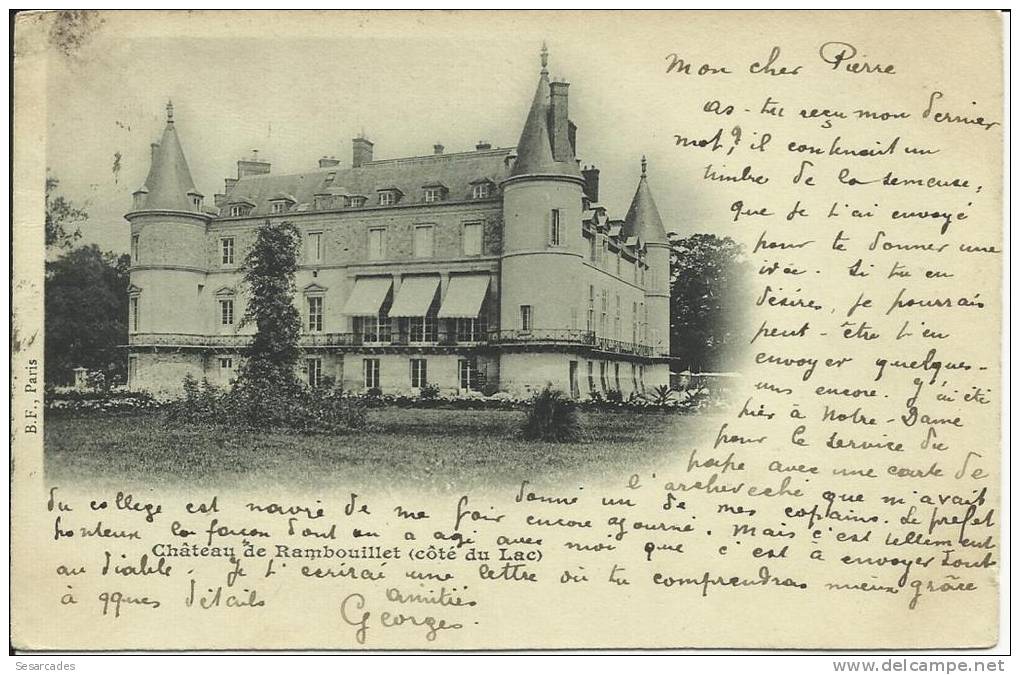 Mon cher Pierre
as-tu reçu mon dernier
mot? il contenait un
timbre de la semeuse,
que je t'ai envoyé
pour te donner une
idée. Si tu en
désires, je pourrais
peut-être t'en
envoyer quelques-
uns encore. J'ai été
hier à Notre-Dame
pour le service du
pape avec une carte de
l'archevêché que m'avait
donné un de mes copains. Le préfet
du collège est navré de me voir encore ajourné. Mais c'est tellement
honteux la façon dont on a agi avec moi que c'est à envoyer tout
au diable. Je t'écrirai une lettre où tu comprendras mieux grâce
à qques détails
amitiés
Georges.
Château de Rambouillet (côté du Lac)
B.F., Paris
Sesarcades
www.delcampe.net